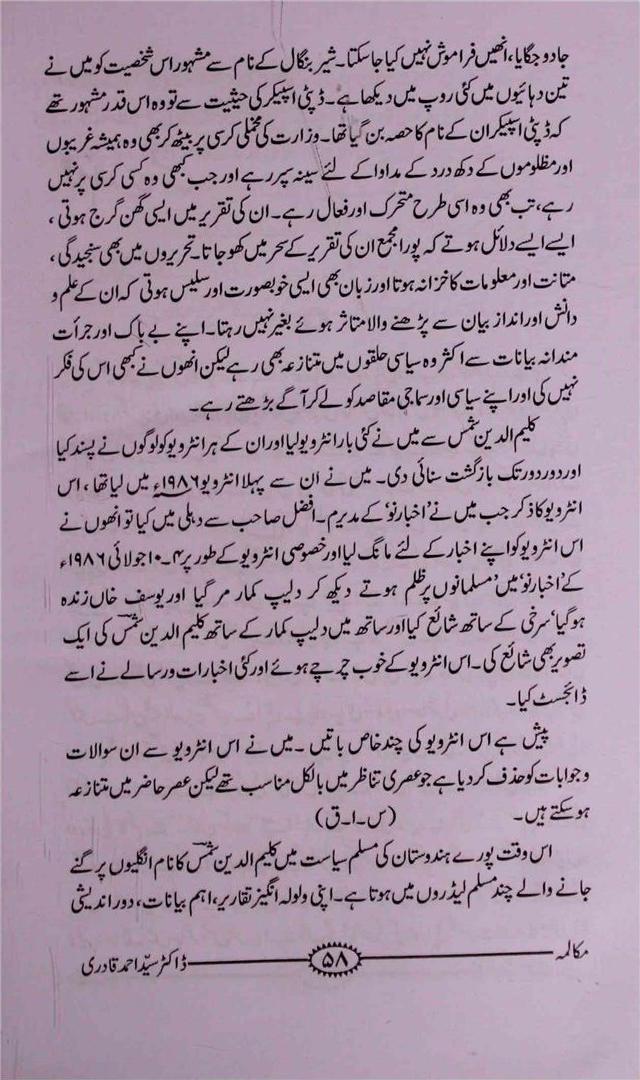 جادو جگایا، انھیں فراموش نہیں کیا جاسکتا۔ شیر بنگال کے نام سے مشہور اس شخصیت کو میں نے
تین دہائیوں میں کئی روپ میں دیکھا ہے۔ ڈپٹی اسپیکر کی حیثیت سے تو وہ اس قدر مشہور تھے
کہ ڈپٹی اسپیکر ان کے نام کا حصہ بن گیا تھا۔ وزارت کی مخملی کرسی پر بیٹھ کر بھی وہ ہمیشہ غریبوں
اور مظلوموں کے دکھ درد کے مداوا کے لئے سینہ سپر رہے اور جب کبھی وہ کسی کرسی پر نہیں
رہے، تب بھی وہ اسی طرح متحرک اور فعال رہے۔ ان کی تقریر میں ایسی گھن گرج ہوتی،
ایسے ایسے دلائل ہوتے کہ پورا مجمع ان کی تقریر کے سحر میں کھو جاتا۔ تحریروں میں بھی سنجیدگی،
متانت اور معلومات کا خزانہ ہوتا اور زبان بھی ایسی خوبصورت اور سلیس ہوتی کہ ان کے علم و
دانش اور انداز بیان سے پڑھنے والا متاثر ہوئے بغیر نہیں رہتا۔ اپنے بے باک اور جرأت
مندانہ بیانات سے اکثر وہ سیاسی حلقوں میں متنازعہ بھی رہے لیکن انھوں نے کبھی اس کی فکر
نہیں کی اور اپنے سیاسی اور سماجی مقاصد کو لے کر آگے بڑھتے رہے۔
کلیم الدین شمس سے میں نے کئی بار انٹرویو لیا اور ان کے ہر انٹرویو کو لوگوں نے پسند کیا
اور دور دور تک بازگشت سنائی دی۔ میں نے ان سے پہلا انٹرویو ۱۹۸۶ء میں لیا تھا، اس
انٹرویو کا ذکر جب میں نے 'اخبار نو' کے مدیر م۔ افضل صاحب سے دہلی میں کیا تو انھوں نے
اس انٹرویو کو اپنے اخبار کے لئے مانگ لیا اور خصوصی انٹرویو کے طور پر ۴۔۱۰ جولائی ۱۹۸۶ء
کے 'اخبار نو' میں 'مسلمانوں پر ظلم ہوتے دیکھ کر دلیپ کمار مر گیا اور یوسف خاں زندہ
ہوگیا' سرخی کے ساتھ شائع کیا اور ساتھ میں دلیپ کمار کے ساتھ کلیم الدین شمس کی ایک
تصویر بھی شائع کی۔ اس انٹرویو کے خوب چرچے ہوئے اور کئی اخبارات و رسالے نے اسے
ڈائجسٹ کیا۔
پیش ہے اس انٹرویو کی چند خاص باتیں ۔میں نے اس انٹرویو سے ان سوالات
و جوابات کو حذف کر دیا ہے جو عصری تناظر میں بالکل مناسب تھے لیکن عصر حاضر میں متنازعہ
ہو سکتے ہیں۔ (س۔ا۔ق)
اس وقت پورے ہندوستان کی مسلم سیاست میں کلیم الدین شمس کا نام انگلیوں پر گنے
جانے والے چند مسلم لیڈروں میں ہوتا ہے۔ اپنی ولولہ انگیز تقاریر، اہم بیانات، دور اندیشی
مکالمہ ۵۸ ڈاکٹر سیّد احمد قادری